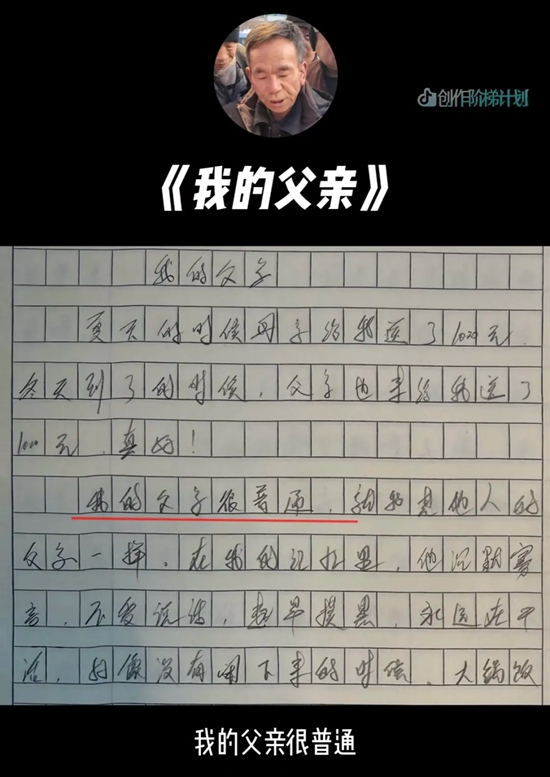 创作阶梯计划
《我的父亲》
我的父亲
夏天的时候母亲给我送了元.
冬天到了的时候，父亲也来给我送了
元，真好！
我的父亲很普通，就如其他人的
父亲一样，在我的记忆里，他沉默寡
言，不爱说话，起早摸黑，永远在干
活，好像没有闲下来的时候，大锅饭
我的父亲很普通